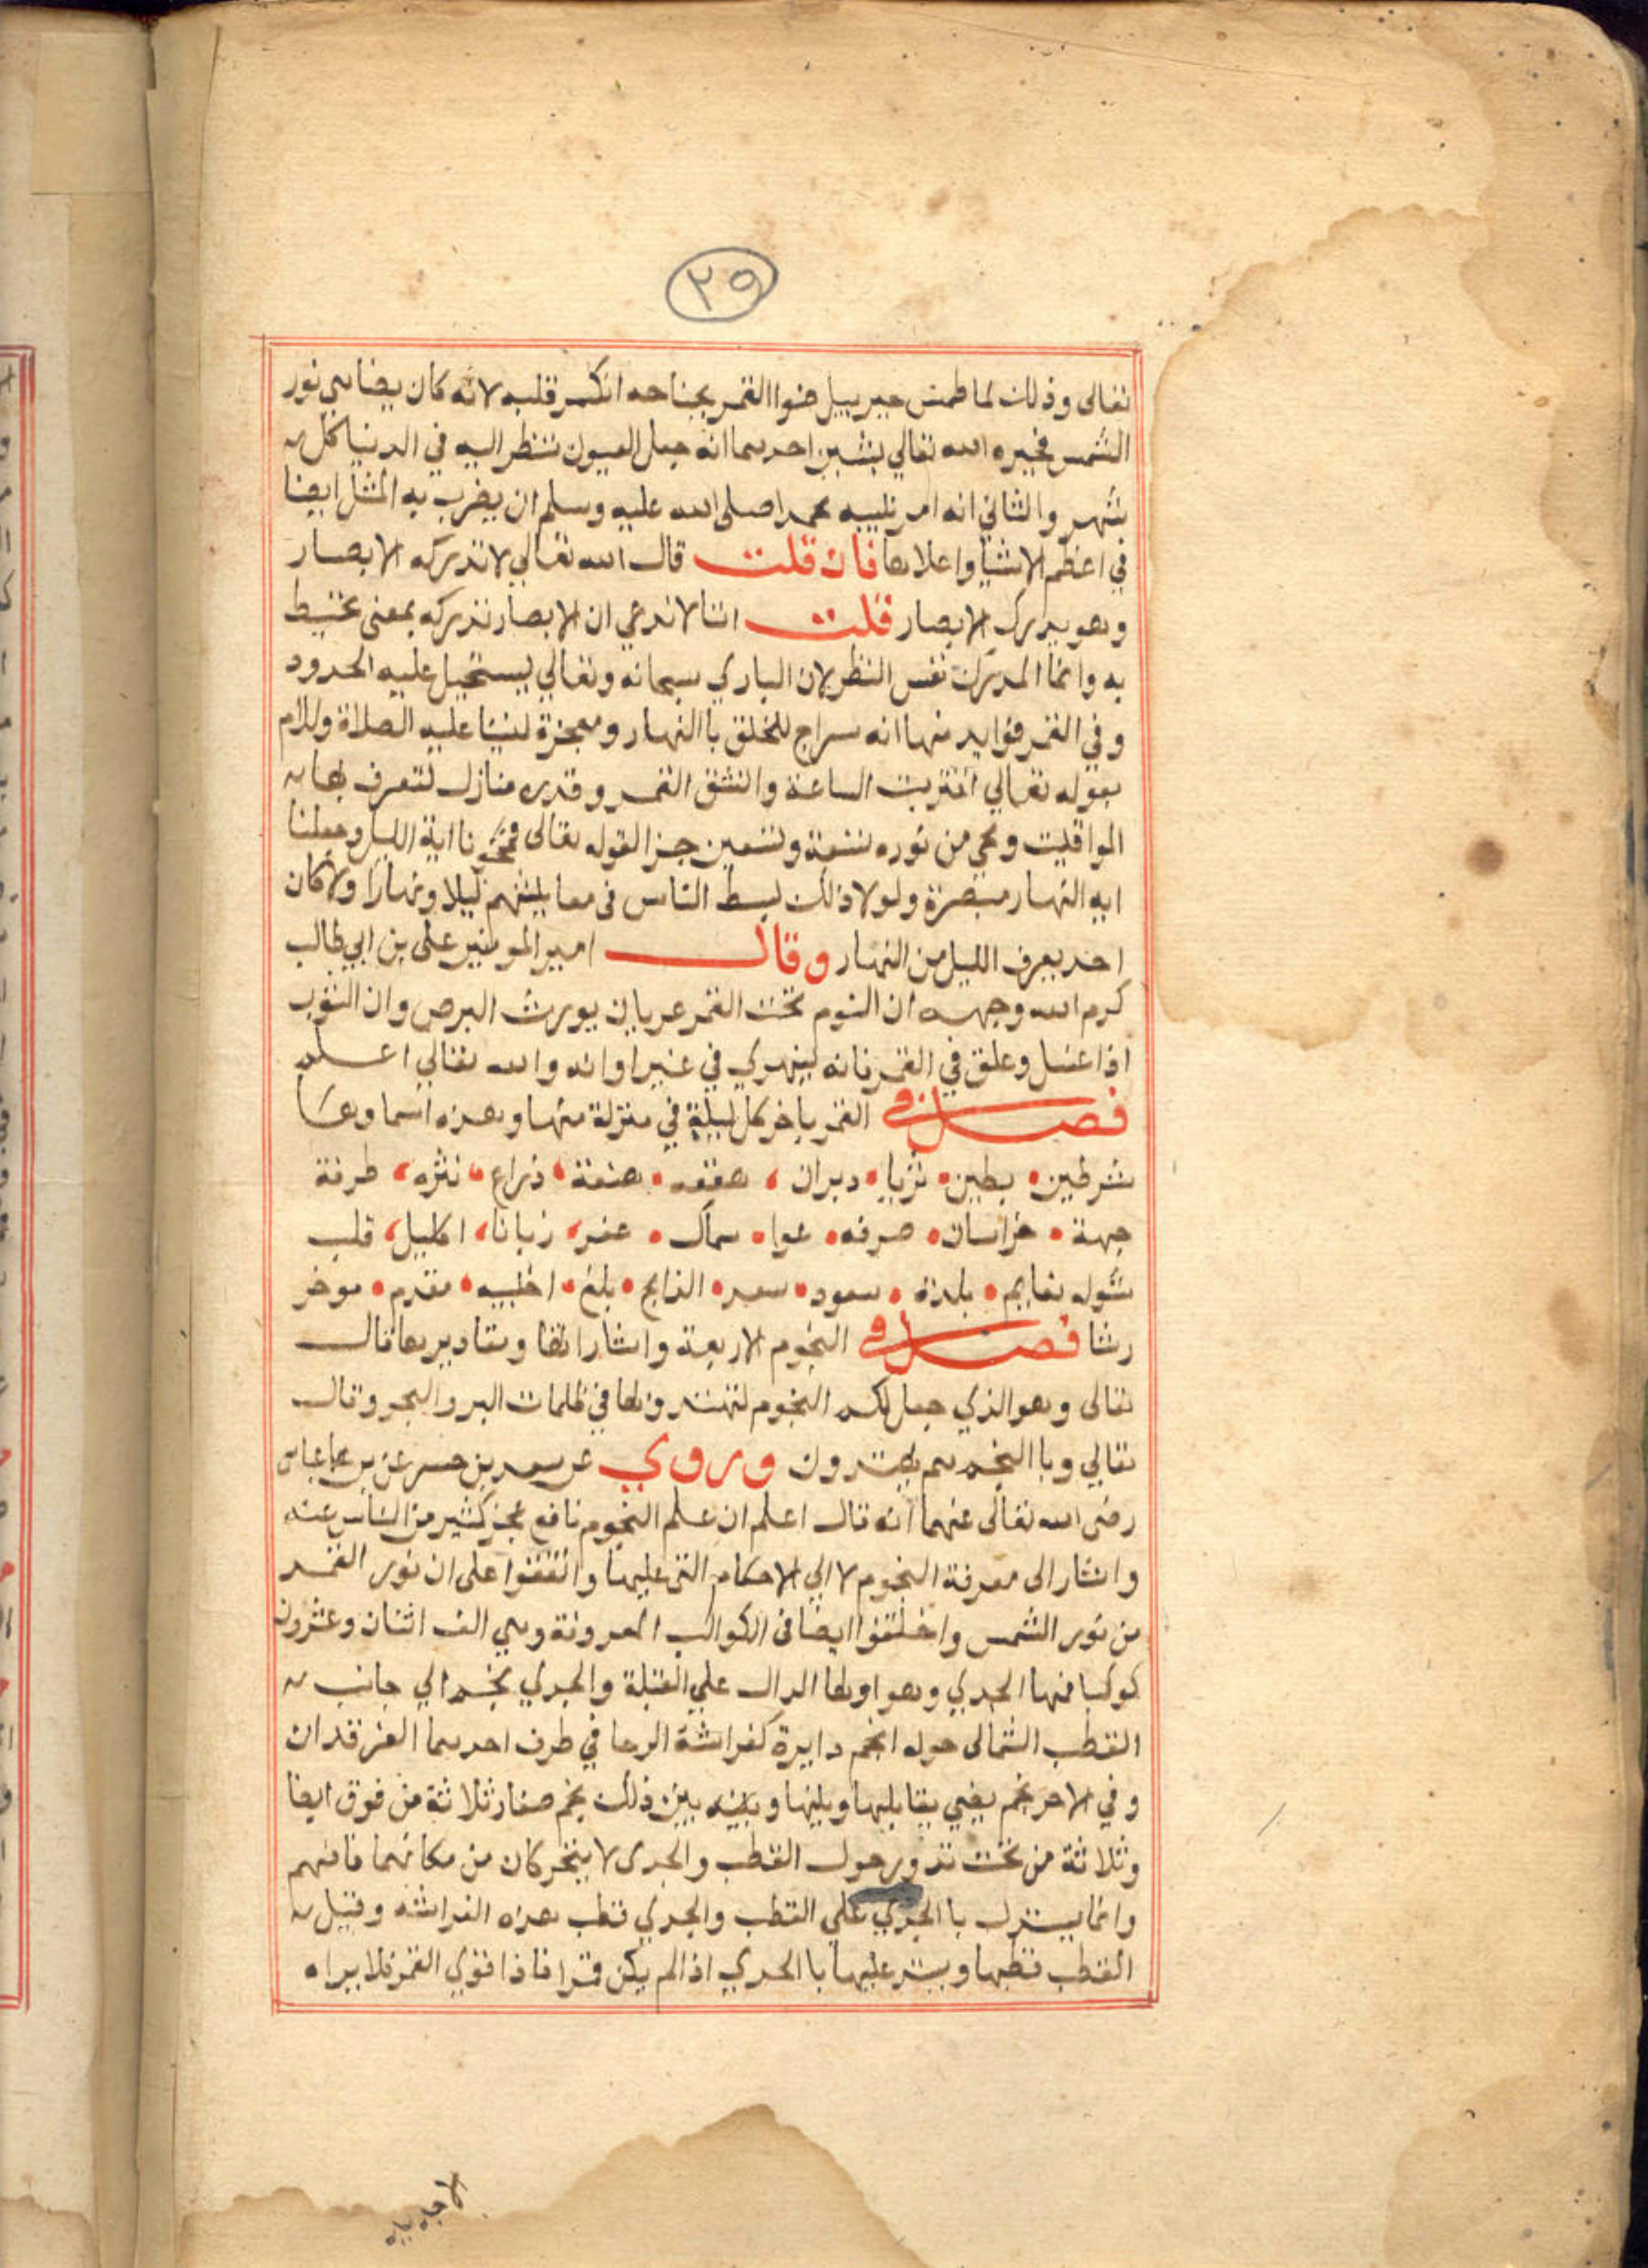 ٢٩
تعالى وذلك لما طمس جبرييل ضوا القمر بجناحه انكسر قلبه لانه كان يضاهى نور
الشمس فخيره الله تعالي بشيين احدهما انه جعل العيون تنظر اليه في الدنيا كل
شهر والثاني انه امر نبيه محمدا صلى الله عليه وسلم ان يضرب به المثل ايضا
في اعظم الاشيا واعلاها فان قلت قال الله تعالي لا تدركه الابصار
وهو يدرك الابصار قلت اننا لا ندعي ان الابصار تدركه بمعنى تحيط
به وانما المدرك نفس النظر لان الباري سبحانه وتعالي يستحيل عليه الحدود
وفي القمر فوايد منها انه سراج للخلق باالنهار ومعجزة لنبينا عليه الصلاة والسلام
بقوله تعالي اقتربت الساعة وانشق القمر وقدره منازل لتعرف بها
المواقيت ومحي من نوره تسعة وتسعين جزا لقوله تعالى فمحونا اية الليل وجعلنا
ايه النهار مبصرة ولولا ذلك لبسط الناس فى معايشهم ليلا ونهارا ولا كان
احد يعرف الليل من النهار وقال امير المومنير على بن ابي طالب
كرم الله وجهه ان النوم تحت القمر عريان يورث البرص وان الثوب
اذا غسل وعلق في القمر فانه ينهري في غير اوانه والله تعالي اعلم
فصل في القمر ياخر كل ليلة في منزلة منها وهذه اسماوها
شرطين بطين ثريا دبران هقعه هنعة ذراع نثره طرفة
جبهة خراسان صرفه عوا سماك غفر زبانا اكليل قلب
شوله نعايم بلدة سعود سعد الذابح بلع اخبيه مقدم موخر
رشا فصل في النجوم الاربعة واشاراتها ومقاديرها قال
تعالى وهو الذي جعل لكم النجوم لتهتدوا بها في ظلمات البر والبحر وقال
تعالي وباالنجم هم يهتدون وروي عن سعد بن حسر عن بن عباس
رضى الله تعالى عنهما انه قال اعلم ان علم النجوم نافع عجز كثير من الناس عنه
واشار الى معرفة النجوم لا الي الاحكام التى عليها واتفقوا على ان نور القمر
من نور الشمس واختلفوا ايضا فى الكواكب المعروفة وهي الف اثنان وعشرون
كوكبا فمنها الجدي وهو اولها الدال علي القبلة والجدي نجم الي جانب
القطب الشمالى حوله انجم دايرة كفراشة الرحا في طرف احدهما الفرقدان
وفي الاخر نجم يضي يقابلها ويليها وبينه بين ذلك نجم صغار ثلاثة من فوق ايضا
وثلاثة من تحت تدور حول القطب والجدى لا يتحركان من مكانهما فافهم
وانما يستدل باالجدي علي القطب والجدي قطب هذه الفراشه وقيل
القطب قطبها ويستر عليها باالجدي اذا لم يكن قمرا فاذا قوي القمر فلا يراه